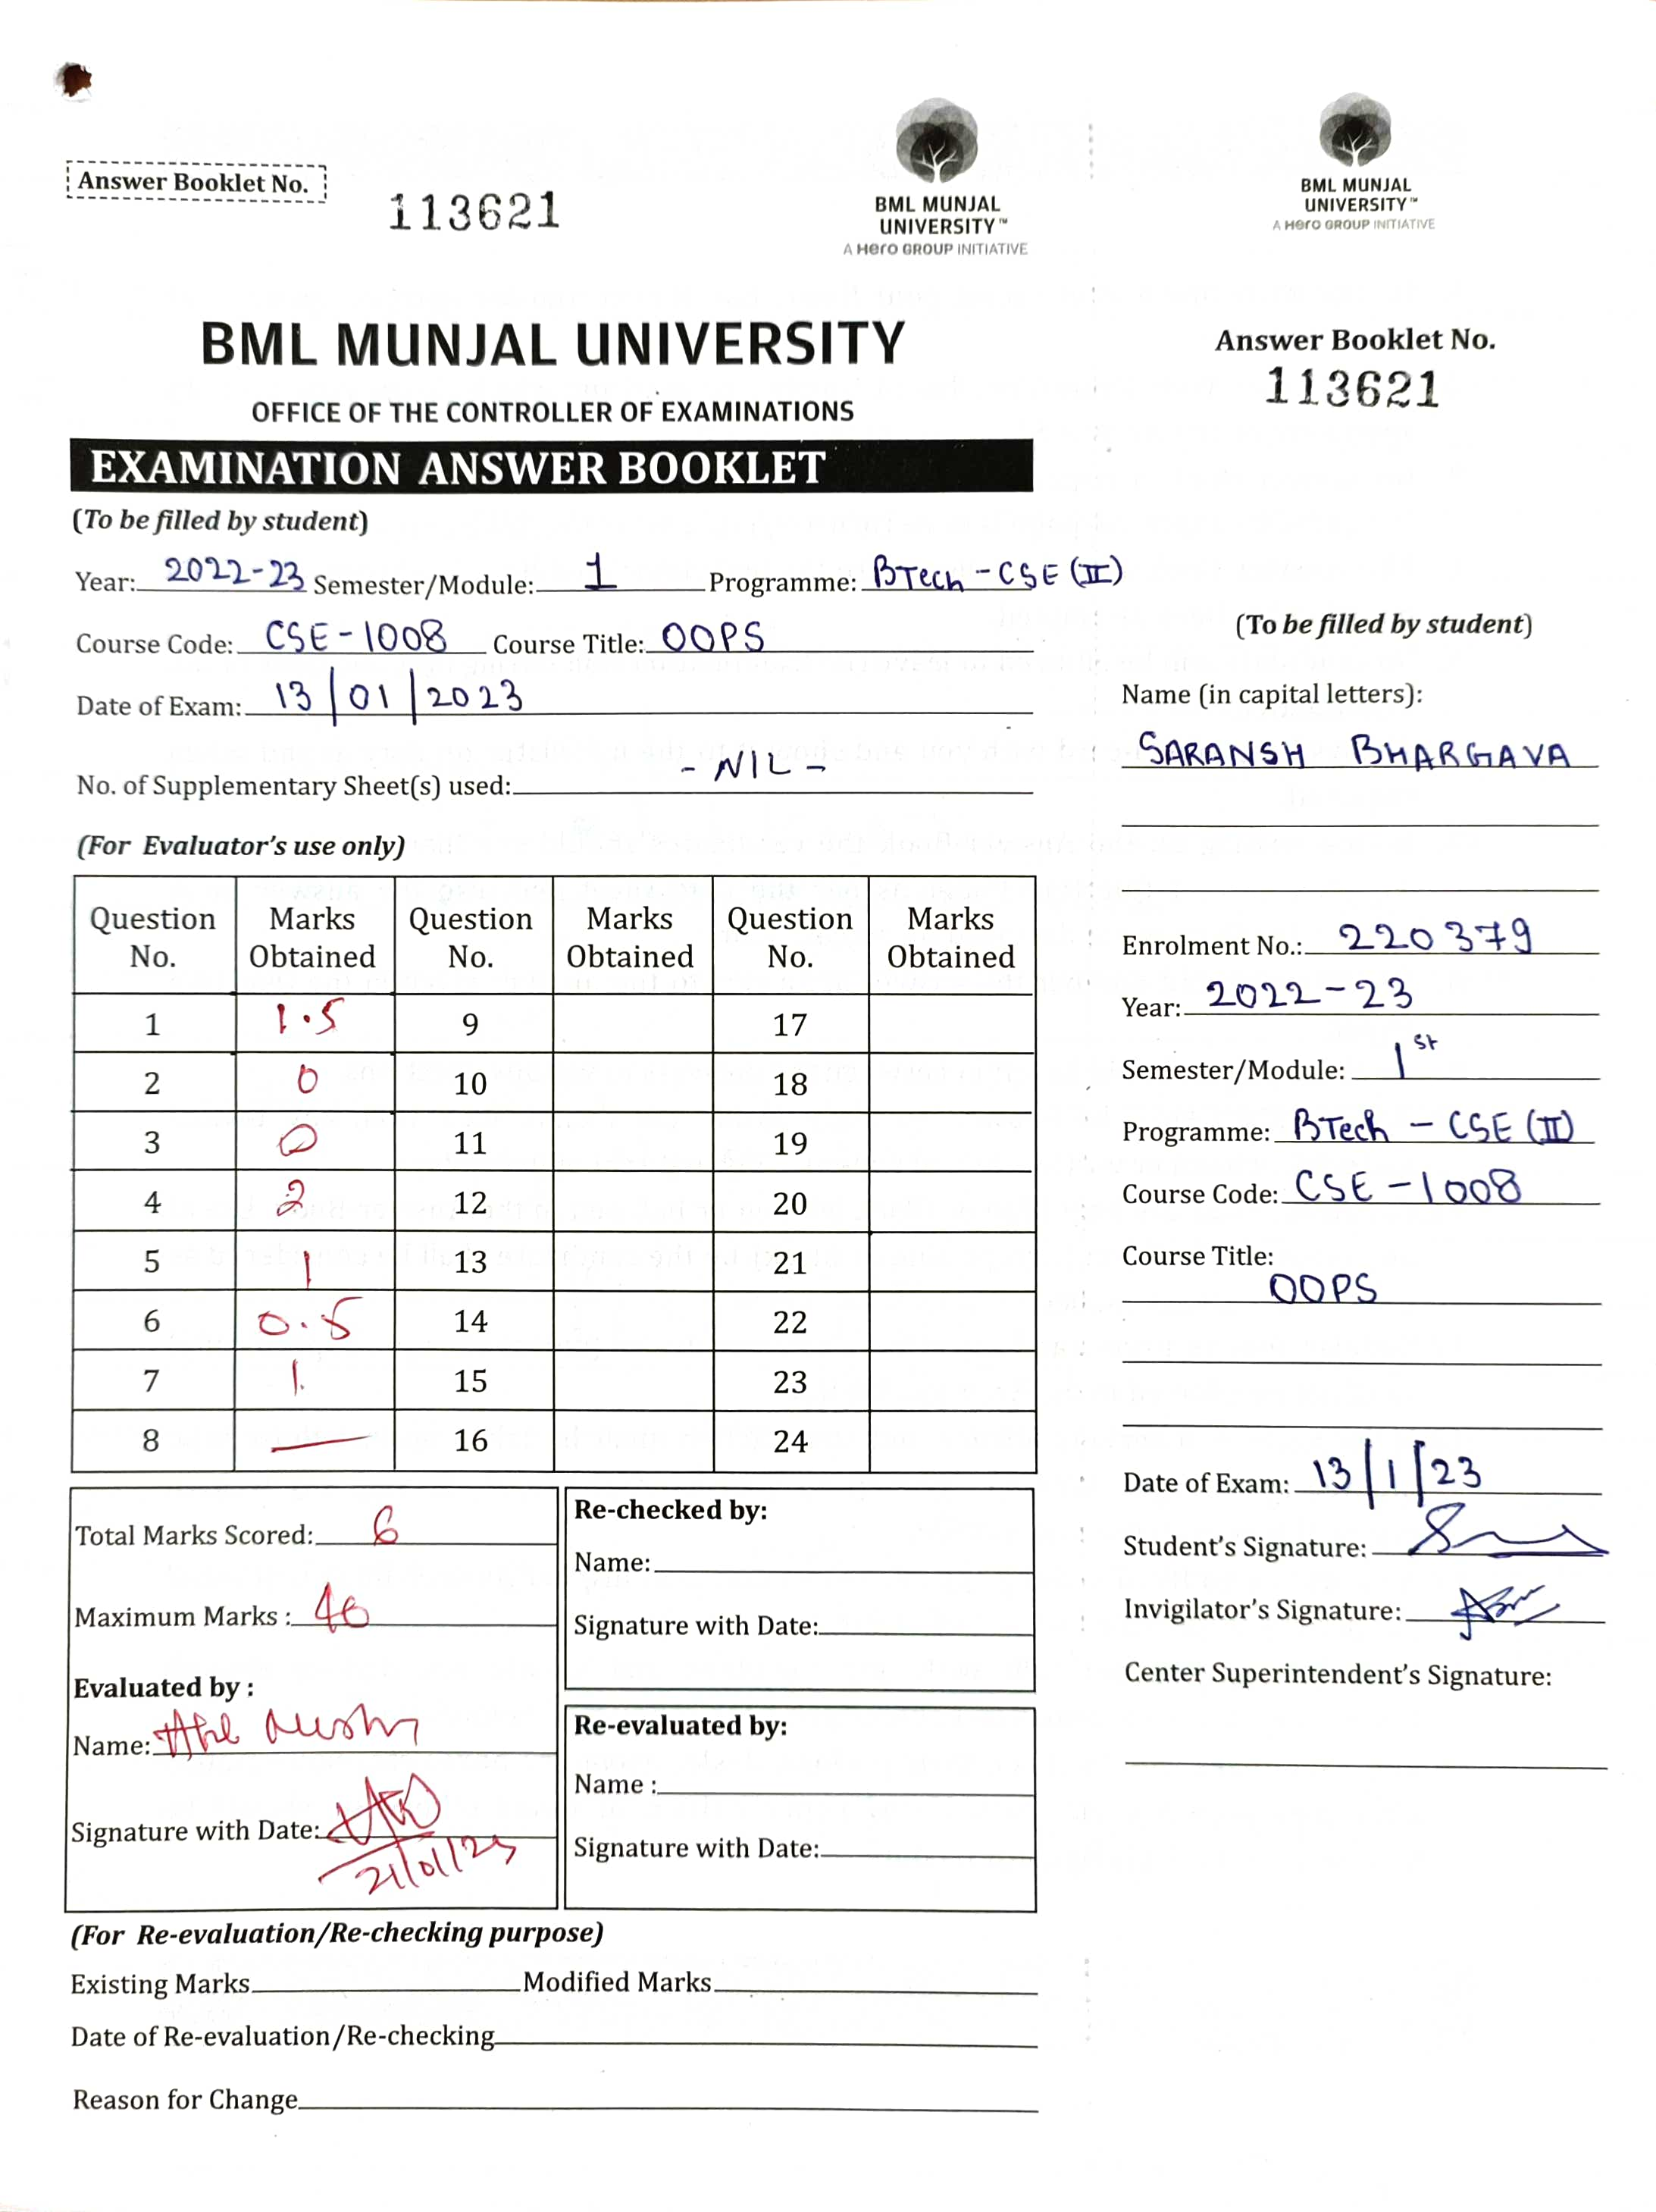 Answer Booklet No.
113621
BML MUNJAL
UNIVERSITY™
A Hero GROUP INITIATIVE
BML MUNJAL UNIVERSITY
OFFICE OF THE CONTROLLER OF EXAMINATIONS
EXAMINATION ANSWER BOOKLET
(To be filled by student)
Year: 2022-23 Semester/Module: 1 Programme: BTech - CSE (II)
Course Code: CSE-1008 Course Title: OOPS
Date of Exam: 13/01/2023
No. of Supplementary Sheet(s) used: - NIL -
(For Evaluator's use only)
Question No. Marks Obtained Question No. Marks Obtained Question No. Marks Obtained
1 1.5 9 17
2 0 10 18
3 0 11 19
4 2 12 20
5 1 13 21
6 0.5 14 22
7 1. 15 23
8 — 16 24
Total Marks Scored: 6
Maximum Marks : 40
Evaluated by :
Name:
Signature with Date: 21/01/23
Re-checked by:
Name:
Signature with Date:
Re-evaluated by:
Name :
Signature with Date:
(For Re-evaluation/Re-checking purpose)
Existing Marks Modified Marks
Date of Re-evaluation/Re-checking
Reason for Change
BML MUNJAL
UNIVERSITY™
A Hero GROUP INITIATIVE
Answer Booklet No.
113621
(To be filled by student)
Name (in capital letters):
SARANSH BHARGAVA
Enrolment No.: 220379
Year: 2022-23
Semester/Module: 1st
Programme: BTech - CSE (II)
Course Code: CSE -1008
Course Title:
OOPS
Date of Exam: 13/1/23
Student's Signature:
Invigilator's Signature:
Center Superintendent's Signature: